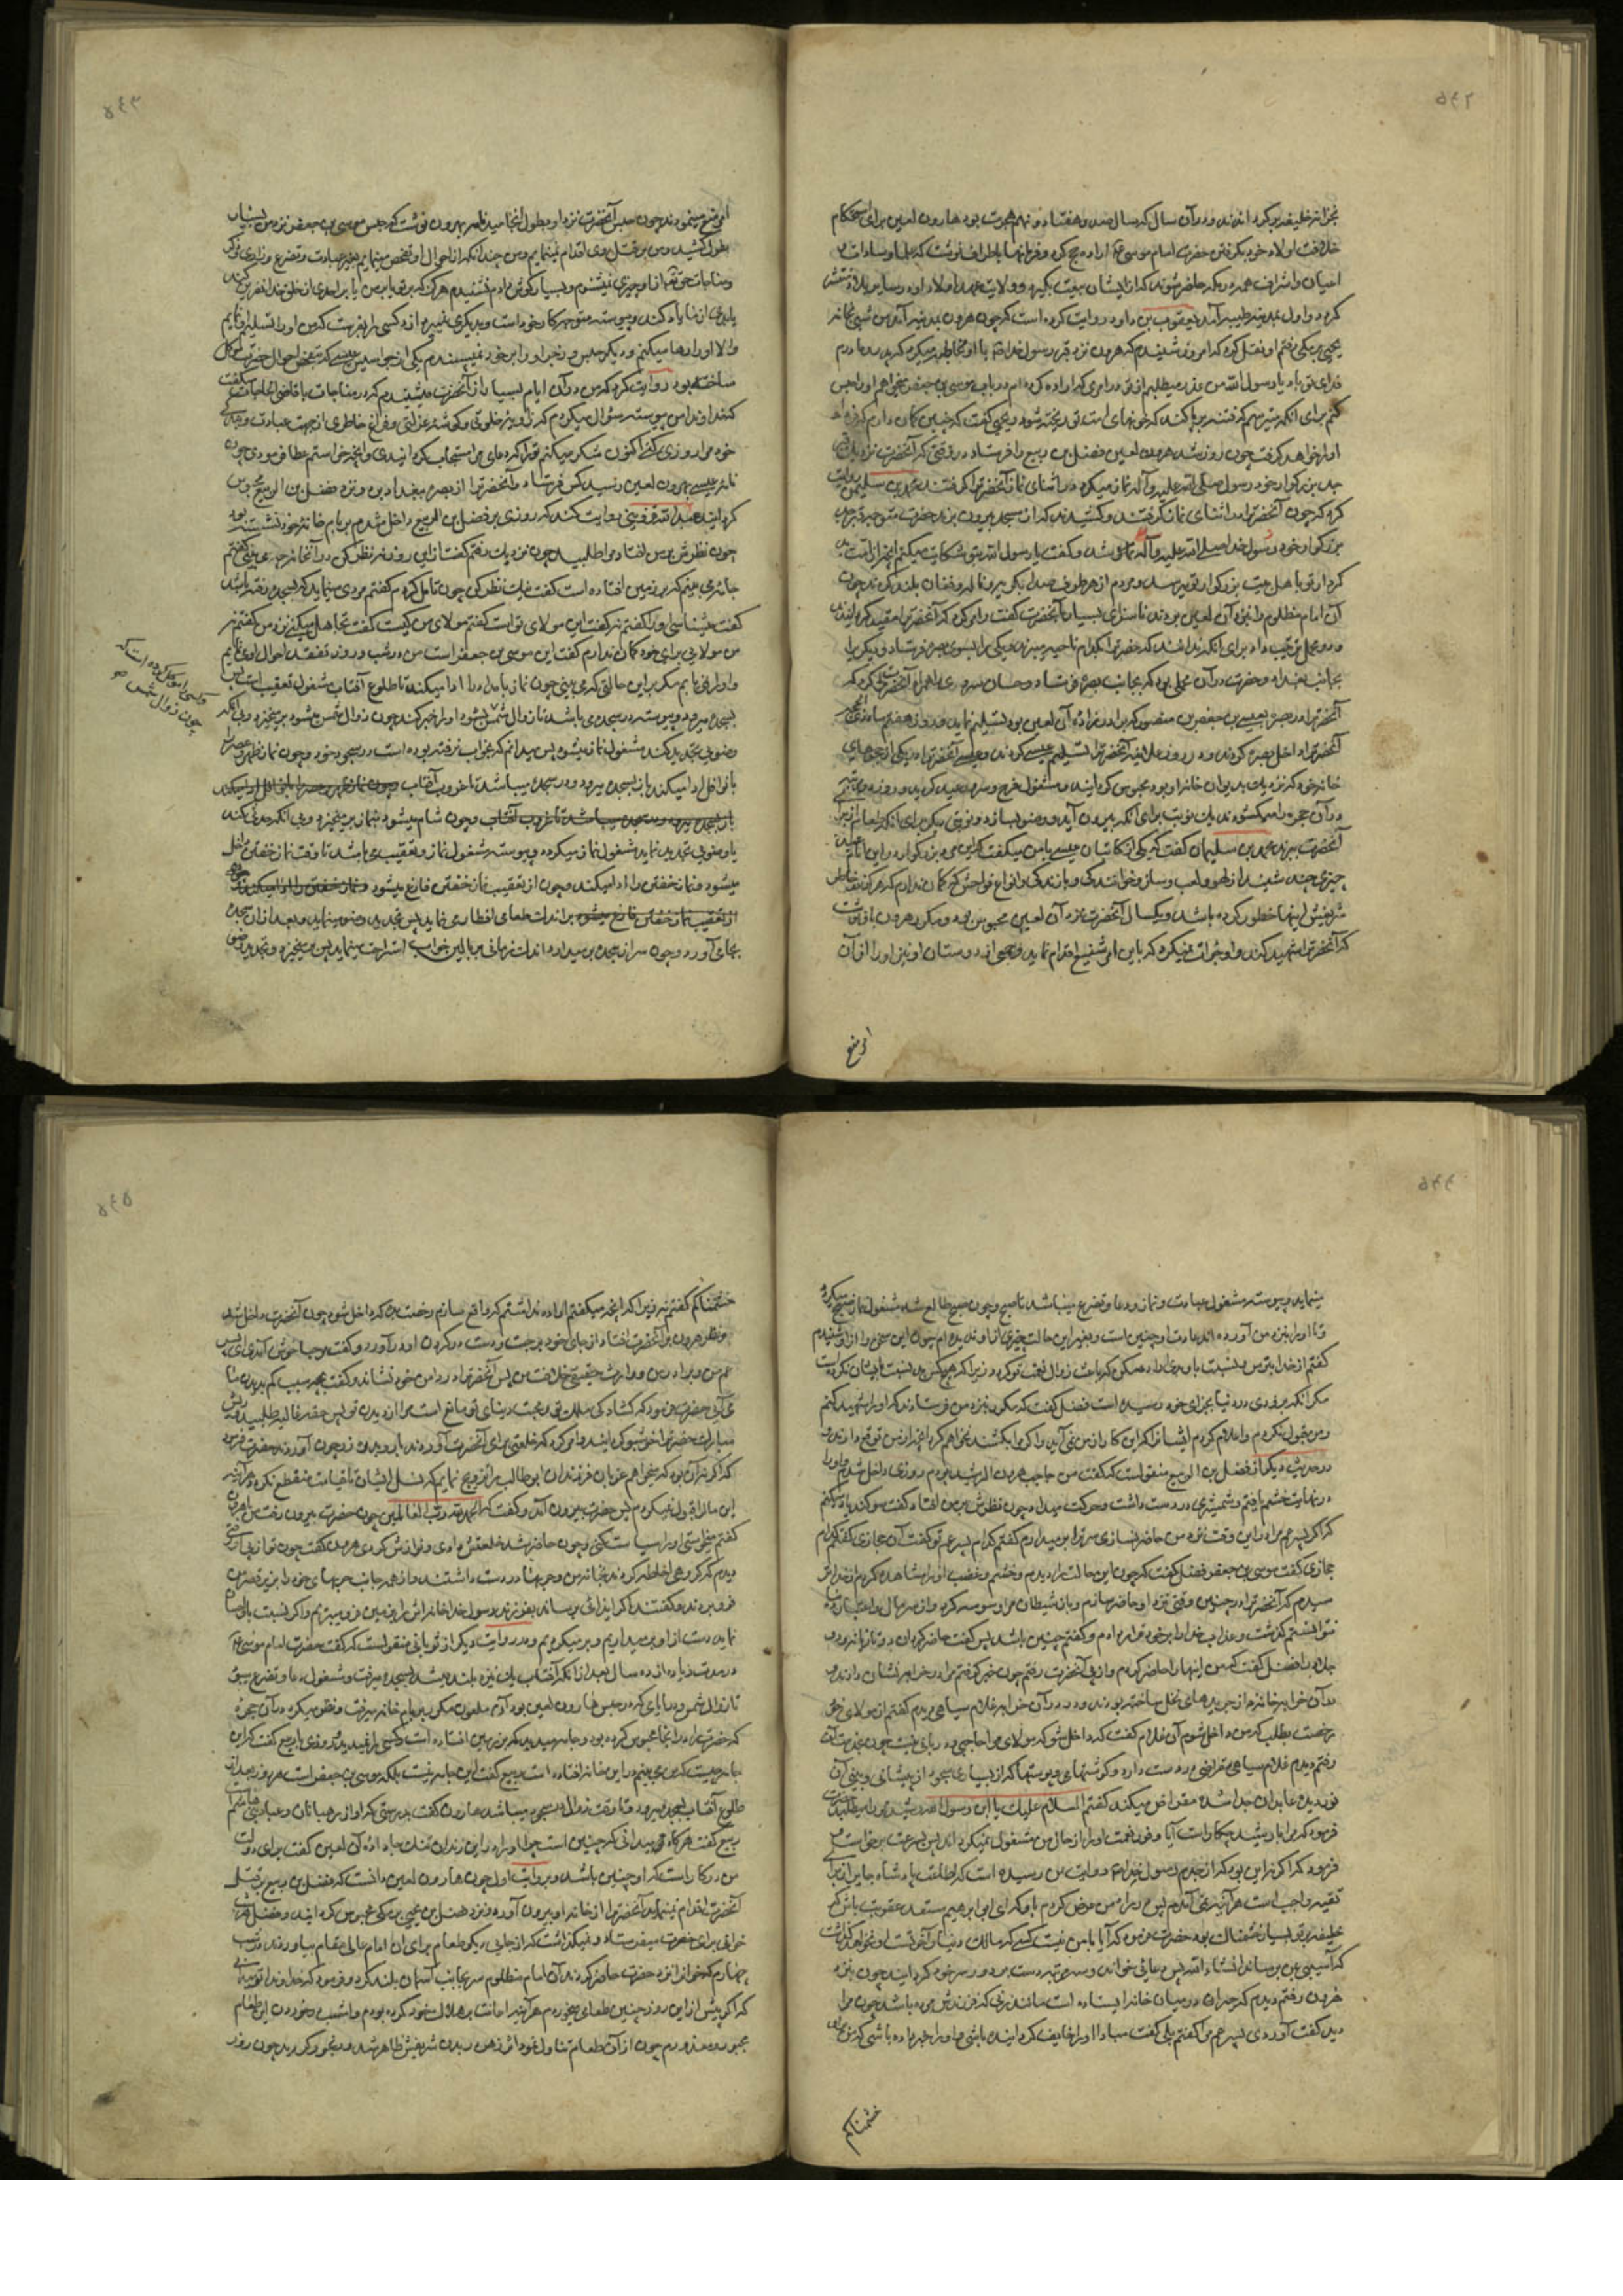 ۵۴۲
بخزانه خلیفه برگرداندند و در آن سال که سال صد و هفتاد و نهم هجرت بود هارون لعین برای استحکام
خلافت اولاد خود بگرفتن حضرت امام موسی ع اراده حج کرد و فرمانها باطراف نوشت که علما و سادات و
اعیان و اشراف همه در مکه حاضر شوند که از ایشان بیعت بگیرد و ولایت عهد اولاد او در سایر بلاد منتشر
کردد و اول بمدینه طیبه آمد یعقوب بن داود روایت کرده است که چون هرون بمدینه آمد من شبی بخانه
یحیی برمکی رفتم او نقل کرد که امروز شنیدم که هرون نزد قبر رسول خدا با او مخاطبه میکرد که پدر و مادرم
فدای تو باد یا رسول الله من عذر میطلبم از تو در امری که اراده کرده ام در باب موسی بن جعفر میخواهم او را حبس
کنم برای آنکه میترسم که فتنه برپا کند که خونهای امت تو ریخته شود یحیی گفت که چنین گمان دارم که فردا
او را خواهد گرفت چون روز شد هرون لعین فضل بن ربیع را فرستاد در وقتی که آنحضرت نزد
جد بزرگوار خود رسول صلی الله علیه و آله نماز میکرد در اثنای نماز آنحضرت را گرفتند
که چون آنحضرت را در اثنای نماز گرفتند و کشیدند که از مسجد بیرون برند حضرت متوجه قبر جد
بزرگوار خود رسول خدا صلی الله علیه و آله شد و گفت یا رسول الله بتو شکایت میکنم آنچه از امت بد
کردار تو باهل بیت بزرگوار تو میرسد و مردم از هر طرف صدا بگریه و ناله و فغان بلند کردند چون
آن امام مظلوم را نزد آن لعین بردند ناسزای بسیار بآنحضرت گفت و امر کرد که آنحضرت را مقید گردانیدند
و دو محمل ترتیب داد برای آنکه ندانند که حضرت را بکدام ناحیه میبرند یکی را بسوی بصره فرستاد و دیگری را
بجانب بغداد و حضرت در آن محملی بود که بجانب بصره فرستاد و حسان سروی را همراه آنحضرت کرد که
آنحضرت را در بصره بعیسی بن جعفر بن منصور که برادرزاده آن لعین بود تسلیم نماید در روز هفتم ماه ذی الحجه
آنحضرت را داخل بصره کردند و در روز علانیه آنحضرت را تسلیم عیسی کردند و عیسی آنحضرت را در یکی از حجرهای
خانه خود که نزدیک بدیوان خانه او بود محبوس گردانید و مشغول فرح و سرور عید گردید و روزی دو مرتبه
در آن حجره را میگشودند یک نوبت برای آنکه بیرون آید و وضو بسازد و نوبتی دیگر برای آنکه طعام از برای
آنحضرت ببرند محمد بن سلیمان گفت که یکی از کاتبان عیسی با من میگفت که این مرد بزرگوار در این ایام عید
چیزی چند شنید از لهو و لعب و ساز و خوانندگی و بازندگی و انواع فواحش که گمان ندارم که هرگز بخاطر
شریفش اینها خطور کرده باشد و یکسال آنحضرت نزد آن لعین محبوس بود و مکرر هرون باو نوشت
که آنحضرت را شهید کند و او جرأت نمیکرد که باین امر شنیع اقدام نماید و جمعی از دوستان او نیز او را از آن
امر شنیع
۵۴۳
امر شنیع منع مینمودند چون حبس آنحضرت نزد او بطول انجامید نامه بهرون نوشت که حبس موسی بن جعفر نزد من بسیار
بطول کشید و من بر قتل وی اقدام نمینمایم و من چندانکه از احوال او تفحص مینمایم بغیر عبادت و تضرع و زاری و ذکر
و مناجات حقتعالی از او چیزی نمیشنوم و بسیار گوش دادم نشنیدم هرگز که بر تو یا بر من یا بر احدی از خلق خدا نفرین کند
یا بدی از ما یاد کند و پیوسته متوجه کار خود است و بدیگری نمیپردازد کسی را بفرست که من او را تسلیم او نمایم
و الا او را رها میکنم و دیگر حبس و زجر او را بر خود نمیپسندم یکی از جواسیس عیسی که بتفحص احوال حضرت موکل
ساخته بود روایت کرد که من در آن ایام بسیار از آنحضرت میشنیدم که در مناجات با قاضی الحاجات میگفت
که خداوندا من پیوسته سؤال میکردم که زاویه خلوتی و گوشه عزلتی و فراغ خاطری از جهت عبادت و بندگی
خود مرا روزی کنی اکنون شکر میکنم ترا که دعای مرا مستجاب گردانیدی و آنچه خواستم عطا فرمودی چون
نامه عیسی بهرون لعین رسید کس فرستاد و آنحضرت را از بصره ببغداد برد و نزد فضل بن الربیع محبوس
گردانید عبدالله قزوینی روایت کند که روزی بر فضل بن الربیع داخل شدم بر بام خانه خود نشسته بود
چون نظرش بر من افتاد مرا طلبید چون نزدیک رفتم گفت از این روزنه نظر کن در آنخانه چه می بینی گفتم
جامه می بینم که بر زمین افتاده است گفت نیک نظر کن چون تامل کردم گفتم مردی مینماید که بسجده رفته باشد
گفت میشناسی او را گفتم نه گفت این مولای تو است گفتم مولای من کیست گفت تجاهل میکنی نزد من گفتم نه
من مولایی برای خود گمان ندارم گفت این موسی بن جعفر است من در شب و روز تفقد احوال او مینمایم
و او را نمی یابم مگر بر این حالتی که می بینی چون نماز بامداد را ادا میکند تا طلوع آفتاب مشغول تعقیب است پس
بسجده میرود و پیوسته در سجده می باشد تا زوال شمس بشود او را خبر کند چون زوال شمس میشود برمیخیزد و بی آنکه
وضوئی تجدید کند مشغول نماز میشود پس میدانم که بخواب نرفته بوده است در سجود خود و چون نماز ظهر و عصر را
با نوافل ادا میکند باز بسجده میرود و در سجده میباشد تا غروب آفتاب چون نماز ظهر و عصر را با نوافل ادا میکند
باز بسجده میرود و در سجده میباشد تا غروب آفتاب و چون شام میشود بنماز برمیخیزد و بی آنکه حدثی کند
یا وضوئی تجدید نماید مشغول نماز میگردد و پیوسته مشغول نماز و تعقیب می باشد تا وقت نماز خفتن داخل
میشود و نماز خفتن را ادا میکند و چون از تعقیب نماز خفتن فارغ میشود و نماز خفتن را ادا میکند و چون
از تعقیب نماز خفتن فارغ میشود بر اندک طعامی افطار می نماید پس تجدید وضو مینماید و بعد از آن سجده
بجای آورد و چون سر از سجده برمیدارد اندک زمانی بر بالین خواب استراحت مینماید پس برمیخیزد و تجدید وضو
و کسی را موکل کرده است که
چون زوال شمس
۵۴۴
مینماید و پیوسته مشغول عبادت و نماز و دعا و تضرع میباشد تا صبح و چون صبح طالع شد مشغول نماز صبح میگردد
و تا او را بنزد من آورده اند عادت او چنین است و بغیر این حالت چیزی از او ندیده ام چون این سخن را از او شنیدم
گفتم از خدا بترس و نسبت باو بدی اراده مکن که باعث زوال نعمت تو گردد زیرا که هیچکس بد نسبت بایشان نکرده است
مگر آنکه بزودی در دنیا بجزای خود رسیده است فضل گفت که مکرر بنزد من فرستادند که او را شهید کنم
و من قبول نکردم و اعلام کردم ایشان را که این کار از من نمی آید و اگر مرا بکشند نخواهم کرد آنچه از من توقع دارند و
در حدیث دیگر از فضل بن الربیع منقولست که گفت من حاجب هرون الرشید بودم روزی داخل شدم او را
در نهایت خشم یافتم و شمشیری در دست داشت و حرکت میداد چون نظرش بر من افتاد گفت سوگند یاد میکنم
که اگر پسر عم مرا در این وقت نزد من حاضر نسازی سر ترا برمیدارم گفتم کدام پسر عم تو گفت آن حجازی گفتم کدام
حجازی گفت موسی بن جعفر فضل گفت که چون این حالت را دیدم و خشم و غضب او را مشاهده کردم از خدا
ترسیدم که آنحضرت را در چنین وقتی نزد او حاضر سازم و باز شیطان مرا وسوسه کرد و از سر مال و اعتبار
نتوانستم گذشت و عذاب خدا را بر خود قرار دادم و گفتم چنین باشد پس گفت حاضر گردان دو تازیانه و دو
جلاد را فضل گفت که من اینها را حاضر کردم و از پی آنحضرت رفتم چون خبر گرفتم مرا در خرابه نشان دادند و
در آن خرابه خانه از جریدهای نخل ساخته بودند و در در آن خرابه غلام سیاهی دیدم گفتم از مولای خود
رخصت بطلب که من داخل شوم آن غلام گفت که داخل شو که مولای مرا حاجبی و دربانی نیست چون بخدمتش
رفتم دیدم غلام سیاهی مقراضی در دست دارد و گوشتهای و پوستها که از بسیاری سجود از پیشانی و بینی آن
نور دیده عابدان جدا شده مقراض میکند گفتم السلام علیک یا ابن رسول الله رشید ترا میطلبد حضرت
فرمود که مرا با رشید چکار است آیا وفور نعمت او را از حال من مشغول نمیگرداند پس بسرعت برخاست و
فرمود که اگر نه این بود که از جدم رسول خدا ص روایت بمن رسیده است که اطاعت پادشاه جابر از برای
تقیه واجب است هر آینه نمی آمدم پس در راه من عرض کردم باو که ای ابو ابراهیم مستعد عقوبت باش که
خلیفه بر تو بسیار خشمناک بود حضرت فرمود که آیا با من نیست کسی که مالک دنیا و آخرتست و نخواهد گذاشت
که آسیبی بمن برساند انشاء الله پس دعائی خواند و سه مرتبه دست بر دور سر خود گردانید چون بنزد
هرون رفتم دیدم که حیران در میان خانه ایستاده است مانند زنی که فرزندش مرده باشد چون مرا
دید گفت آوردی پسر عم مرا گفتم بلی گفت مبادا او را خایف گردانیده باشی و او را خبر داده باشی که من بر او
خشمناکم
۵۴۵
خشمناکم گفتم نه زیرا که آنچه میگفتم اراده نداشتم که واقع سازم رخصت بده که داخل شود چون آنحضرت داخل شد
و نظر هرون بر آنحضرت افتاد از جای خود برجست و دست در گردن او در آورد و گفت مرحبا خوش آمدی ای پسر
عم من و برادر من و وارث حقیقی خلافت من پس آنحضرت را در دامن خود نشاند و گفت بچه سبب کم بدیدن ما
می آئی حضرت فرمود که گشادگی ملک تو و محبت دنیای تو مانع است مرا از دیدن تو پس حقه غالیه طلبید و ریش
مبارک حضرت را خوشبو گردانید و امر کرد که خلعتی برای آنحضرت آوردند با دو بدره زر چون آوردند حضرت فرمود
که اگر نه آن بود که میخواهم عزبان فرزندان ابو طالب را تزویج نمایم که نسل ایشان تا قیامت منقطع نگردد هر آینه
این مال را قبول نمیکردم پس حضرت بیرون آمد و گفت الحمد لله رب العالمین چون حضرت بیرون رفت من بهرون
گفتم میخواستی او را سیاست کنی و چون حاضر شد خلعتش دادی و نوازش کردی هرون گفت چون تو از پی او رفتی
دیدم که گروهی احاطه کردند بخانه من و حربها در دست داشتند و از همه جانب حربهای خود را بزیر قصر من
فرو بردند و گفتند اگر ایذائی برساند بفرزند رسول خدا خانه اش را بزمین فرو میبریم و اگر نسبت باو احسان
نماید دست از او برمیداریم و برمیگردیم و در روایت دیگر از ثوبانی منقولست که گفت حضرت امام موسی ع
در مدت زیاده از ده سال بعد از آنکه آفتاب یک نیزه بلند میشد بسجده میرفت و مشغول دعا و تضرع میبود
تا زوال شمس و در ایامی که در حبس هارون لعین بود آن ملعون مکرر ببام خانه میرفت و نظر میکرد در آن حجره
که حضرت را در آنجا محبوس کرده بود و جامه میدید که بر زمین افتاده است و کسی را نمیدید روزی با ربیع گفت که این
جامه چیست که می بینم در این خانه افتاده است ربیع گفت این جامه نیست بلکه موسی بن جعفر است هر روز بعد از
طلوع آفتاب بسجده میرود و تا وقت زوال در سجده میباشد هارون گفت بدرستی که او از رهبانان و عباد بنی هاشم است
ربیع گفت هرگاه میدانی که چنین است چرا او را در این زندان تنگ جا داده آن لعین گفت برای دولت
من در کار است که او چنین باشد و بروایت اول چون هارون لعین دانست که فضل بن ربیع بر قتل
آنحضرت اقدام نمینماید آنحضرت را از خانه او بیرون آورده نزد فضل بن یحیی برمکی محبوس گردانید و فضل هر شب
خوانی برای حضرت میفرستاد و نمیگذاشت که از جای دیگر طعام برای آن امام عالی مقام بیاورند در شب
چهارم که خوان را نزد حضرت حاضر کردند آن امام مظلوم سر بجانب آسمان بلند کرد و فرمود که خداوندا تو میدانی
که اگر پیش از این روز چنین طعامی میخوردم هر آینه اعانت بر هلاک خود کرده بودم و امشب در خوردن این طعام
مجبور و معذورم چون از آن طعام تناول نمود اثر زهر در بدن شریفش ظاهر شد و رنجور گردید چون روز